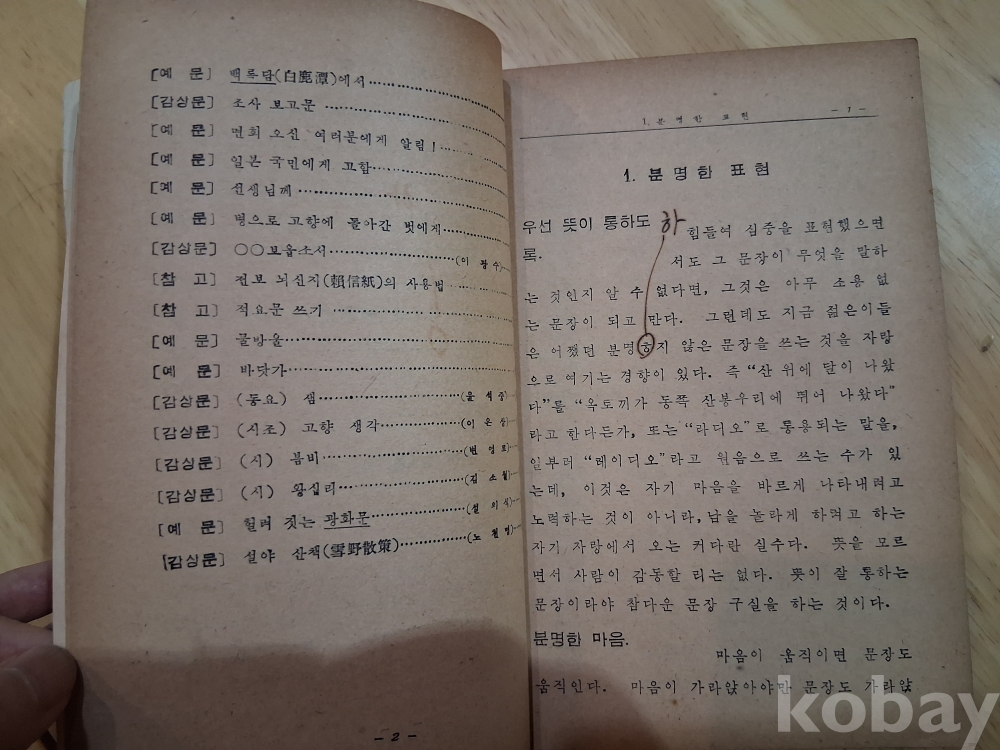 [예 문] 백록담(白鹿潭)에서
[감상문] 조사 보고문
[예 문] 면회 오신 여러분에게 알림!
[예 문] 일본 국민에게 고함
[예 문] 선생님께
[예 문] 병으로 고향에 돌아간 벗에게
[감상문] ○○보옵소서 (이 광 수)
[참 고] 전보 뇌신지(賴信紙)의 사용법
[참 고] 적요문 쓰기
[예 문] 물방울
[예 문] 바닷가
[감상문] (동요) 샘 (윤 석 중)
[감상문] (시조) 고향 생각 (이 은 상)
[감상문] (시) 봄비 (변 영 로)
[감상문] (시) 왕십리 (김 소 월)
[예 문] 헐려 짓는 광화문 (설 의 식)
[감상문] 설야 산책(雪野散策) (노 천 명)
— 2 —
1. 분 명 한 표 현 — 7 —
1. 분 명 한 표 현
우선 뜻이 통하도록.
하
힘들여 심중을 표현했으면
서도 그 문장이 무엇을 말하
는 것인지 알 수 없다면, 그것은 아무 소용 없
는 문장이 되고 만다. 그런데도 지금 젊은이들
은 어쨌던 분명호지 않은 문장을 쓰는 것을 자랑
으로 여기는 경향이 있다. 즉 “산 위에 달이 나왔
다”를 “옥토끼가 동쪽 산봉우리에 뛰어 나왔다”
라고 한다든가, 또는 “라디오”로 통용되는 말을,
일부러 “레이디오”라고 원음으로 쓰는 수가 있
는데, 이것은 자기 마음을 바르게 나타내려고
노력하는 것이 아니라, 남을 놀라게 하려고 하는
자기 자랑에서 오는 커다란 실수다. 뜻을 모르
면서 사람이 감동할 리는 없다. 뜻이 잘 통하는
문장이라야 참다운 문장 구실을 하는 것이다.
분명한 마음.
마음이 움직이면 문장도
움직인다. 마음이 가라앉아야만 문장도 가라앉
kobay